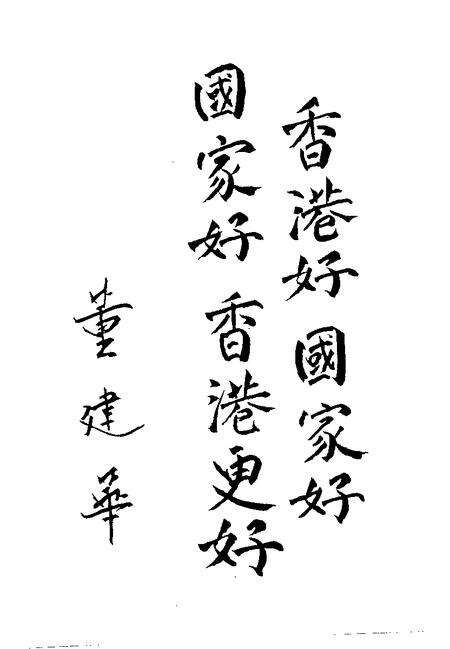 香港好國家好
國家好香港更好
董建華